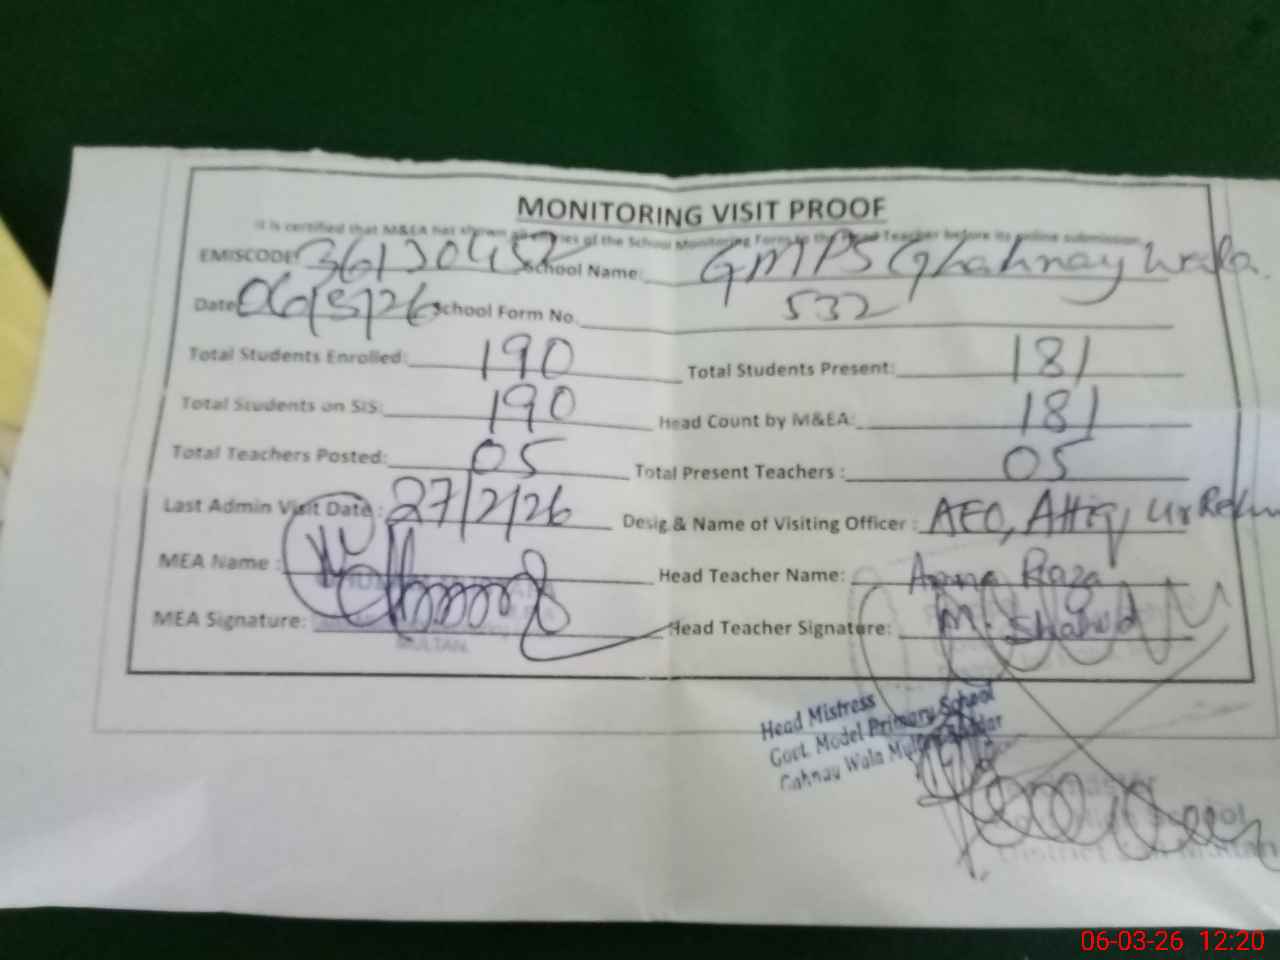 MONITORING VISIT PROOF
It is certified that M&EA has shown all entries of the School Monitoring Form to the Head Teacher before its online submission
EMISCODE 36130452 School Name: GMPS Ghahnay Wala
Date 06/3/26 School Form No. 532
Total Students Enrolled: 190 Total Students Present: 181
Total Students on SIS: 190 Head Count by M&EA: 181
Total Teachers Posted: 05 Total Present Teachers : 05
Last Admin Visit Date : 27/2/26 Desig & Name of Visiting Officer : AEO, Attiq Ur Rehm
MEA Name : Head Teacher Name: Raza
MEA Signature: Head Teacher Signature: M. Shahid
MULTAN
Head Mistress
Govt. Model Primary School
Gahnay Wala
06-03-26 12:20